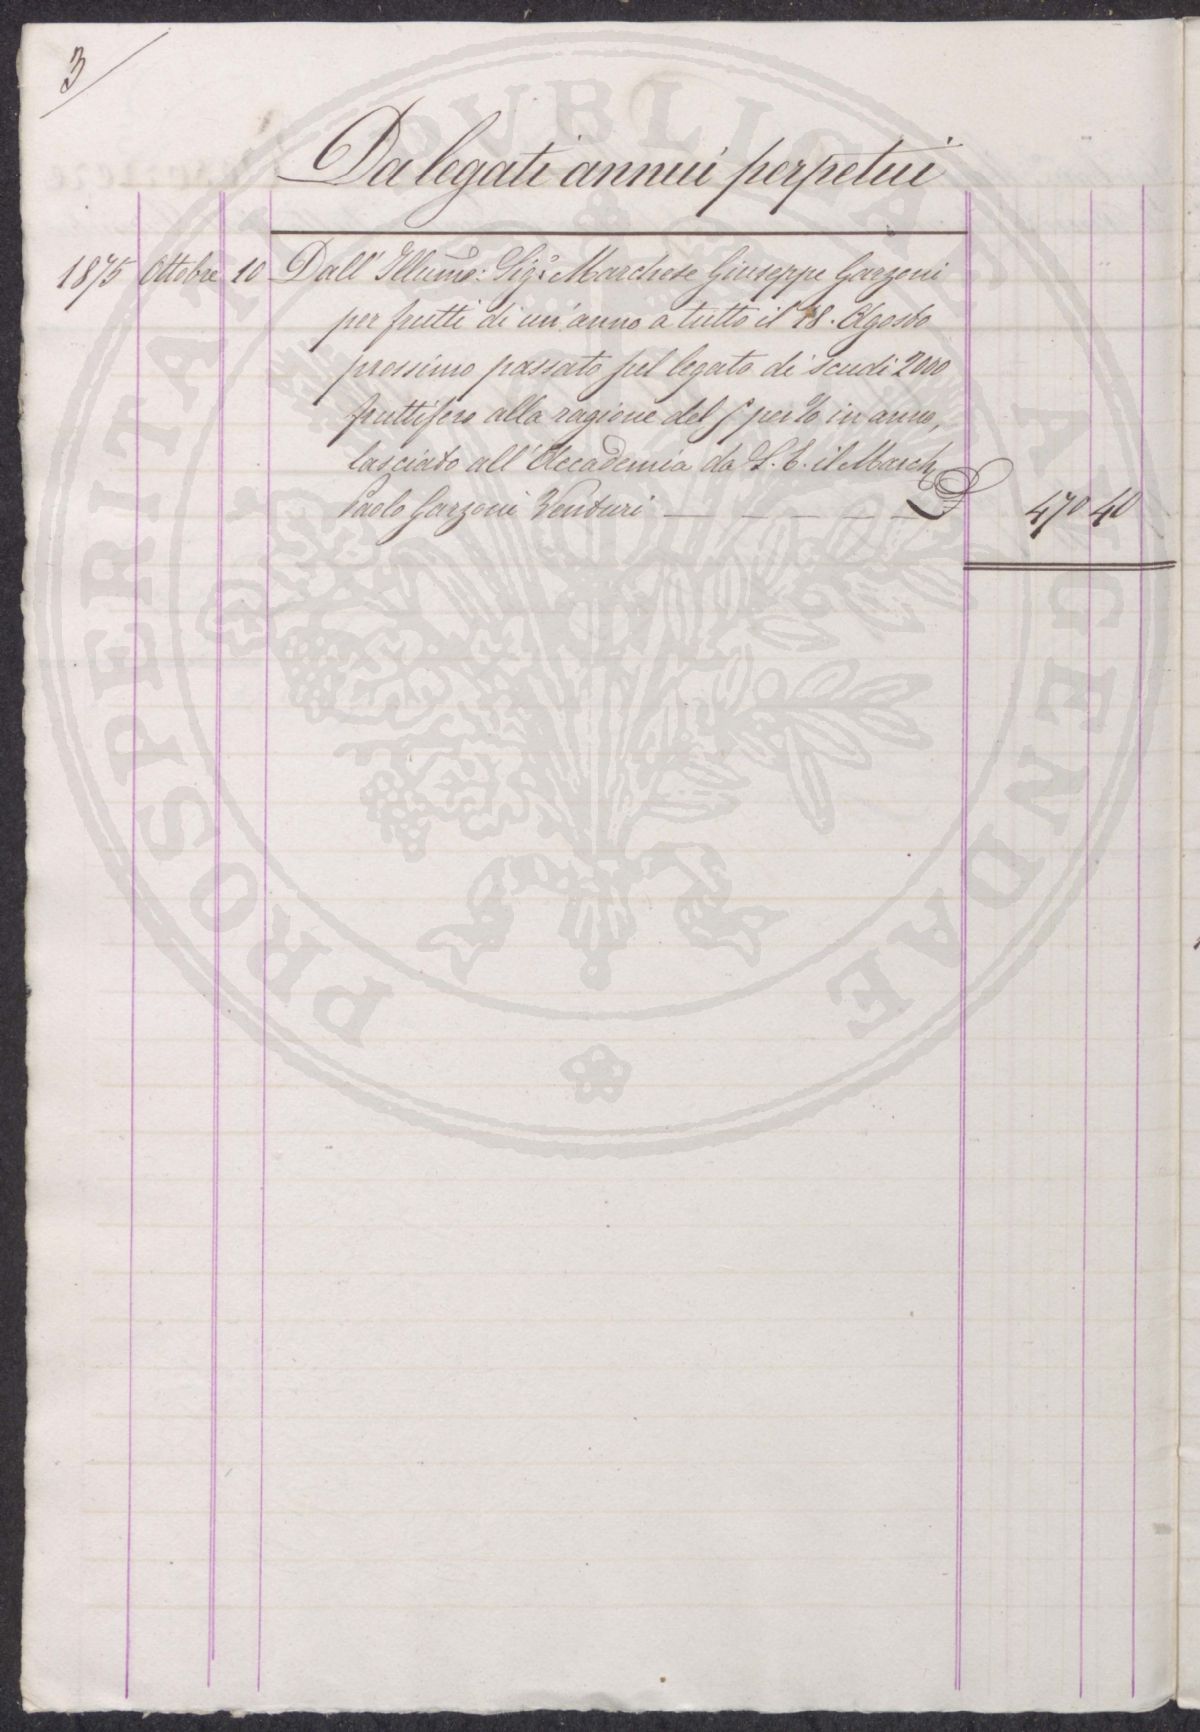 3
Da legati annui perpetui
1875 Ottobre 10 Dall' Illumo: Sigr. Marchese Giuseppe Garzoni
per frutti di un'anno a tutto il 18. Agosto
prossimo passato pel legato di scudi 2000
fruttifero alla ragione del 4 per % in anno,
lasciato all'Accademia da S. E. il March.
Paolo Garzoni Venturi — — — — — £ 470 40
PROSPERITATI PVBLICAE AVGENDAE